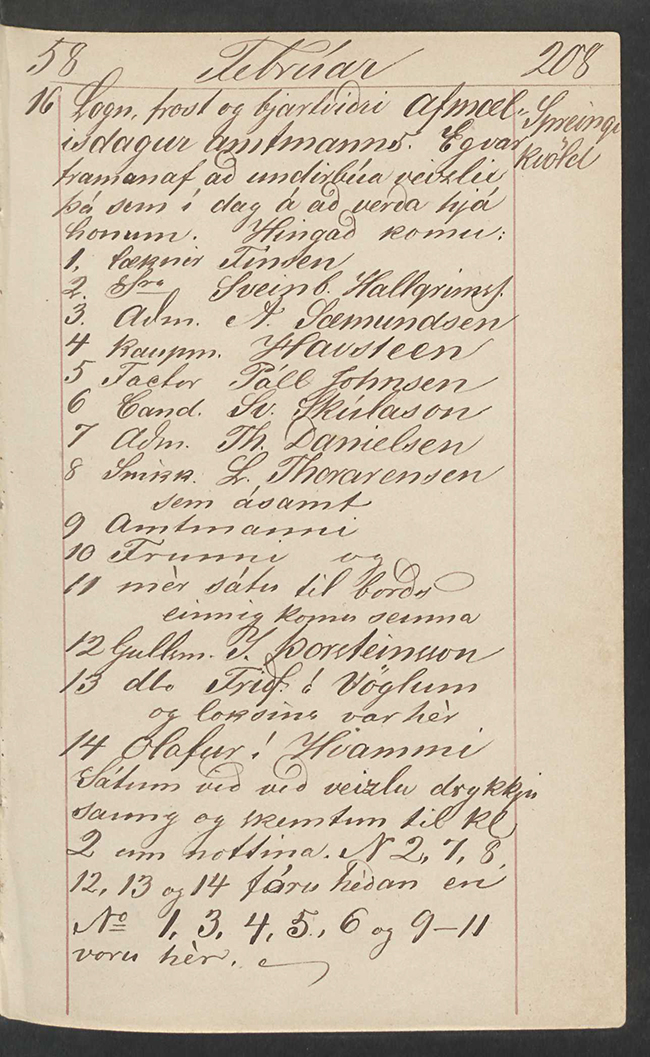 58 Februar 208
16 Logn, frost og bjartviðri afmæl- Spreingi
isdagur amtmanns. Eg var kvöld
framanaf að undirbúa veizlu
þá sem í dag á að verða hjá
honum. Hingað komu:
1. læknir Finsen
2. Sra Sveinb. Hallgrimss.
3. Aðm. A. Sæmundsen
4 Kaupm. Havsteen
5 Factor Páll Johnsen
6 Cand. Sv. Skúlason
7 Aðm. Th. Danielsen
8 Snikk. L. Thorarensen
sem ásamt
9 Amtmanni
10 Frunni og
11 mèr sátu til borðs
einnig komu seinna
12 Gullsm. J. Þorsteinsson
13 dto Frið. á Vöglum
og loksins var hèr
14 Olafur í Hvammi
Sátum við við veizlu drykkju
saung og skemtun til kl
2 um nottina. N 2, 7, 8,
12, 13 og 14 fóru hèðan en
No 1, 3, 4, 5, 6 og 9–11
voru hèr.